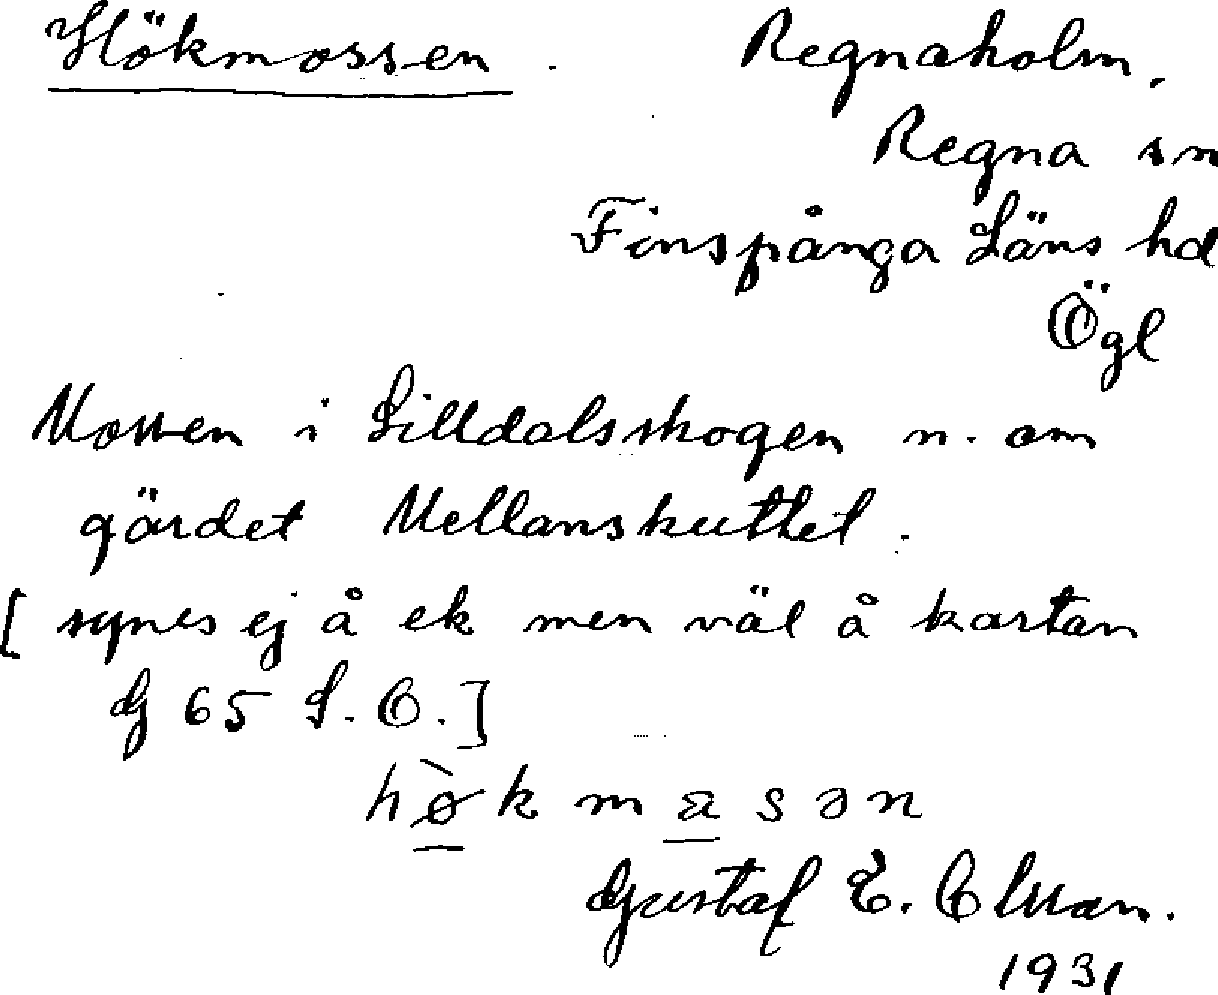 Hökmossen. Regnaholm,
Regna sn
Finspånga Läns hd
Ögl
Mossen i Lilldalsskogen n. om
gärdet Mellanskuttet.
[ synes ej å ek men väl å kartan
G 65 S. O. ]
hø̀kmasən
Gustaf E. Ollman.
1931